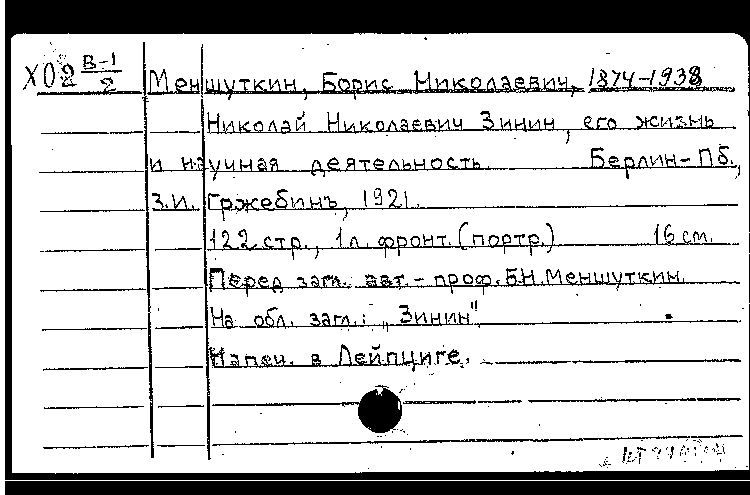 Х02 В-1/2 Меншуткин, Борис Николаевич, 1874-1938
Николай Николаевич Зинин, его жизнь
и научная деятельность. Берлин-Пб.,
З.И. Гржебинъ, 1921.
122 стр., 1л. фронт. (портр.) 16 см.
Перед загл. авт. - проф. Б.Н. Меншуткин.
На обл. загл.: „Зинин"
Напеч. в Лейпциге.